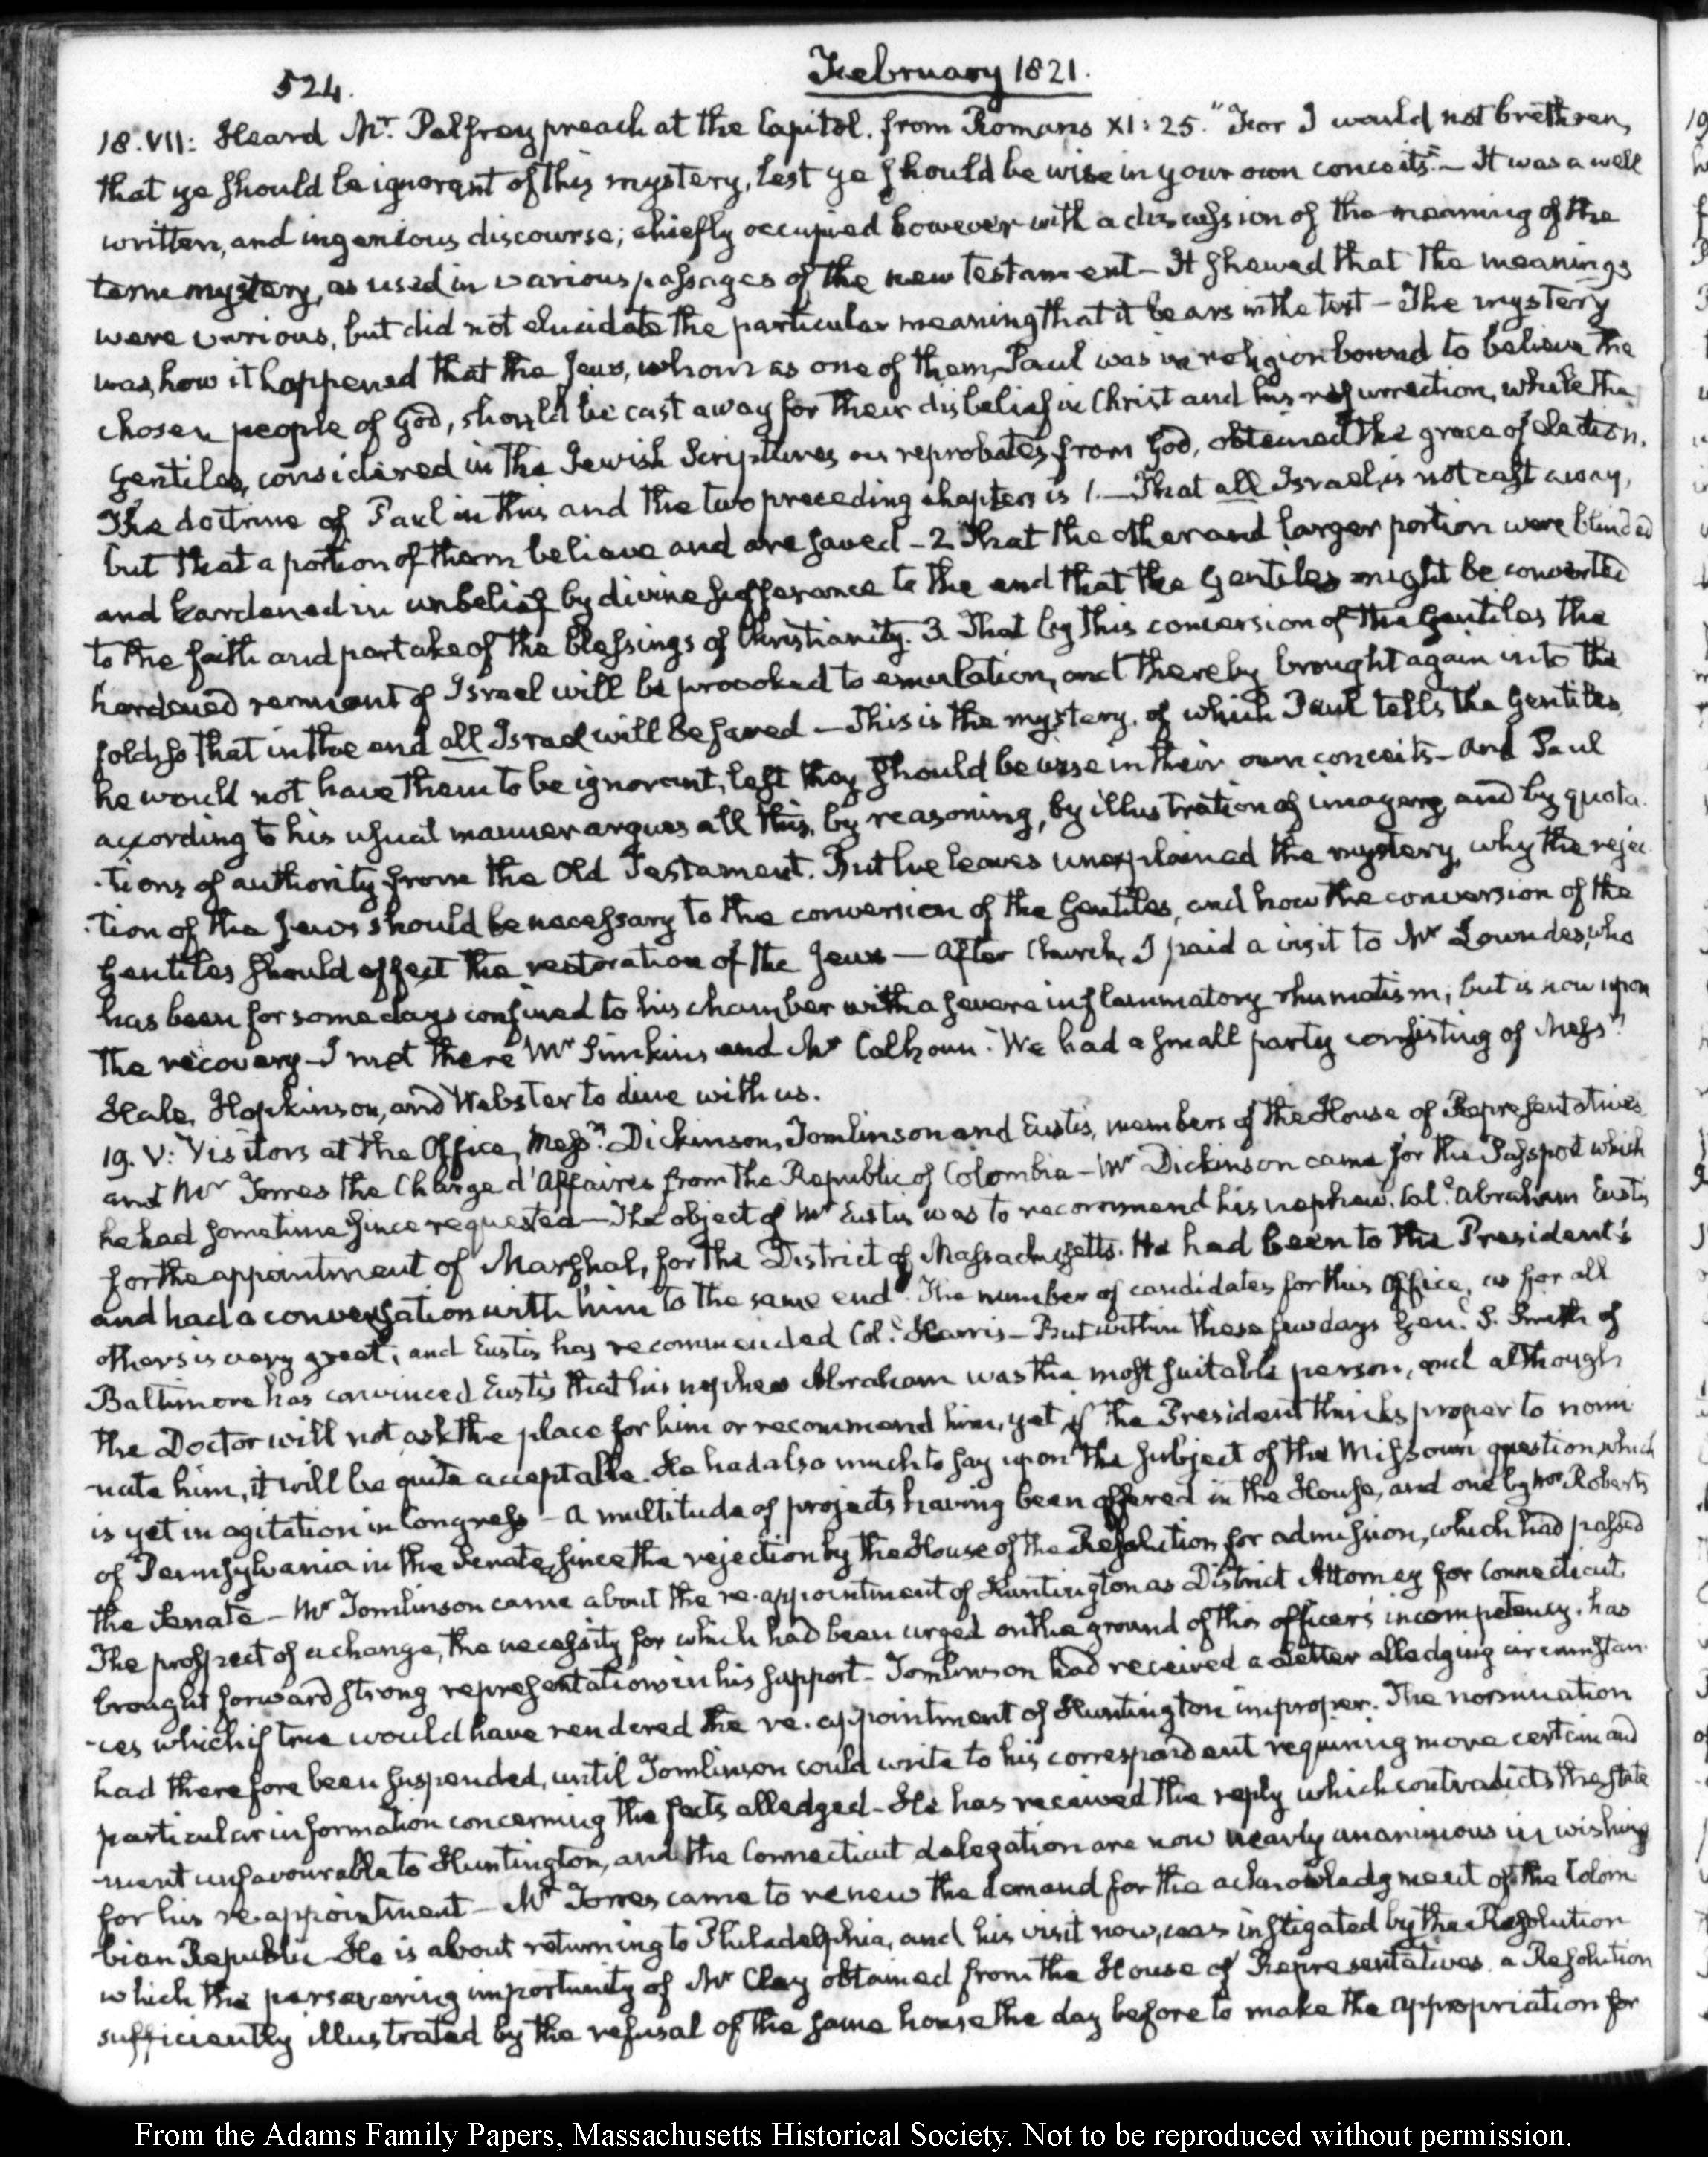 524.
February 1821.
18. VII: Heard Mr. Palfrey preach at the Capitol. from Romans XI: 25. "For I would not brethren,
that ye should be ignorant of this mystery, lest ye should be wise in your own conceits"— It was a well
written, and ingenious discourse; chiefly occupied however with a discussion of the meaning of the
term mystery, as used in various passages of the new testament— It shewed that the meanings
were various, but did not elucidate the particular meaning that it bears in the text— The mystery
was, how it happened that the Jews, whom as one of them, Paul was in religion bound to believe the
chosen people of God, should be cast away for their disbelief in Christ and his resurrection, while the
Gentiles, considered in the Jewish Scriptures as reprobates from God, obtained the grace of election.
The doctrine of Paul in this and the two preceding chapters is 1.— That all Israel is not cast away,
but that a portion of them believe and are saved— 2 That the other and larger portion were blinded
and hardened in unbelief by divine sufferance to the end that the Gentiles might be converted
to the faith and partake of the blessings of Christianity. 3. That by this conversion of the Gentiles the
hardened remnant of Israel will be provoked to emulation, and thereby brought again into the
fold, so that in the end all Israel will be saved— This is the mystery, of which Paul tells the Gentiles
he would not have them to be ignorant, lest they should be wise in their own conceits— And Paul
according to his usual manner argues all this, by reasoning, by illustration of imagery, and by quota-
-tions of authority from the Old Testament. But he leaves unexplained the mystery, why the rejec-
-tion of the Jews should be necessary to the conversion of the Gentiles, and how the conversion of the
Gentiles should effect the restoration of the Jews— After Church, I paid a visit to Mr Lowndes, who
has been for some days confined to his chamber with a severe inflammatory rhumatism; but is now upon
the recovery— I met there Mr Simkins and Mr Calhoun. We had a small party consisting of Messrs
Hale, Hopkinson, and Webster to dine with us.
19. V: Visitors at the Office, Messrs. Dickinson, Tomlinson and Eustis, members of the House of Representatives
and Mr Torres the Chargé d'Affaires from the Republic of Colombia— Mr Dickinson came for the Passport which
he had sometime since requested— The object of Mr Eustis was to recommend his nephew. Col. Abraham Eustis
for the appointment of Marshal, for the District of Massachusetts. He had been to the President's
and had a conversation with him to the same end. The number of candidates for this Office, as for all
others is very great; and Eustis has recommended Col. Harris— But within these few days Genl. S. Smith of
Baltimore has convinced Eustis that his nephew Abraham was the most suitable person, and although
the Doctor will not ask the place for him or recommend him, yet if the President thinks proper to nomi-
-nate him, it will be quite acceptable. He had also much to say upon the subject of the Missouri question, which
is yet in agitation in Congress— A multitude of projects having been offered in the House, and one by Mr. Roberts
of Pennsylvania in the Senate, since the rejection by the House of the Resolution for admission, which had passed
the Senate— Mr Tomlinson came about the re-appointment of Huntington as District Attorney for Connecticut.
The prospect of a change, the necessity for which had been urged on the ground of this officer's incompetency, has
brought forward strong representations in his support— Tomlinson had received a letter alledging circumstan-
-ces which if true would have rendered the re-appointment of Huntington improper. The nomination
had therefore been suspended, until Tomlinson could write to his correspondent requiring more certain and
particular information concerning the facts alledged— He has received the reply which contradicts the state-
-ment unfavourable to Huntington, and the Connecticut delegation are now nearly unanimous in wishing
for his re-appointment— Mr Torres came to renew the demand for the acknowledgment of the Colom-
bian Republic. He is about returning to Philadelphia, and his visit now, was instigated by the Resolution
which the persevering importunity of Mr Clay obtained from the House of Representatives. a Resolution
sufficiently illustrated by the refusal of the same house the day before to make the appropriation for
From the Adams Family Papers, Massachusetts Historical Society. Not to be reproduced without permission.